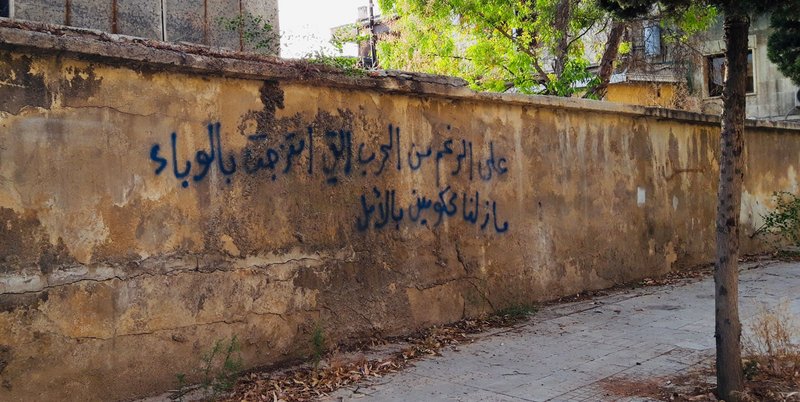 على الرغم من الحرب التي امتزجت بالوباء
ما زلنا محكومين بالأمل